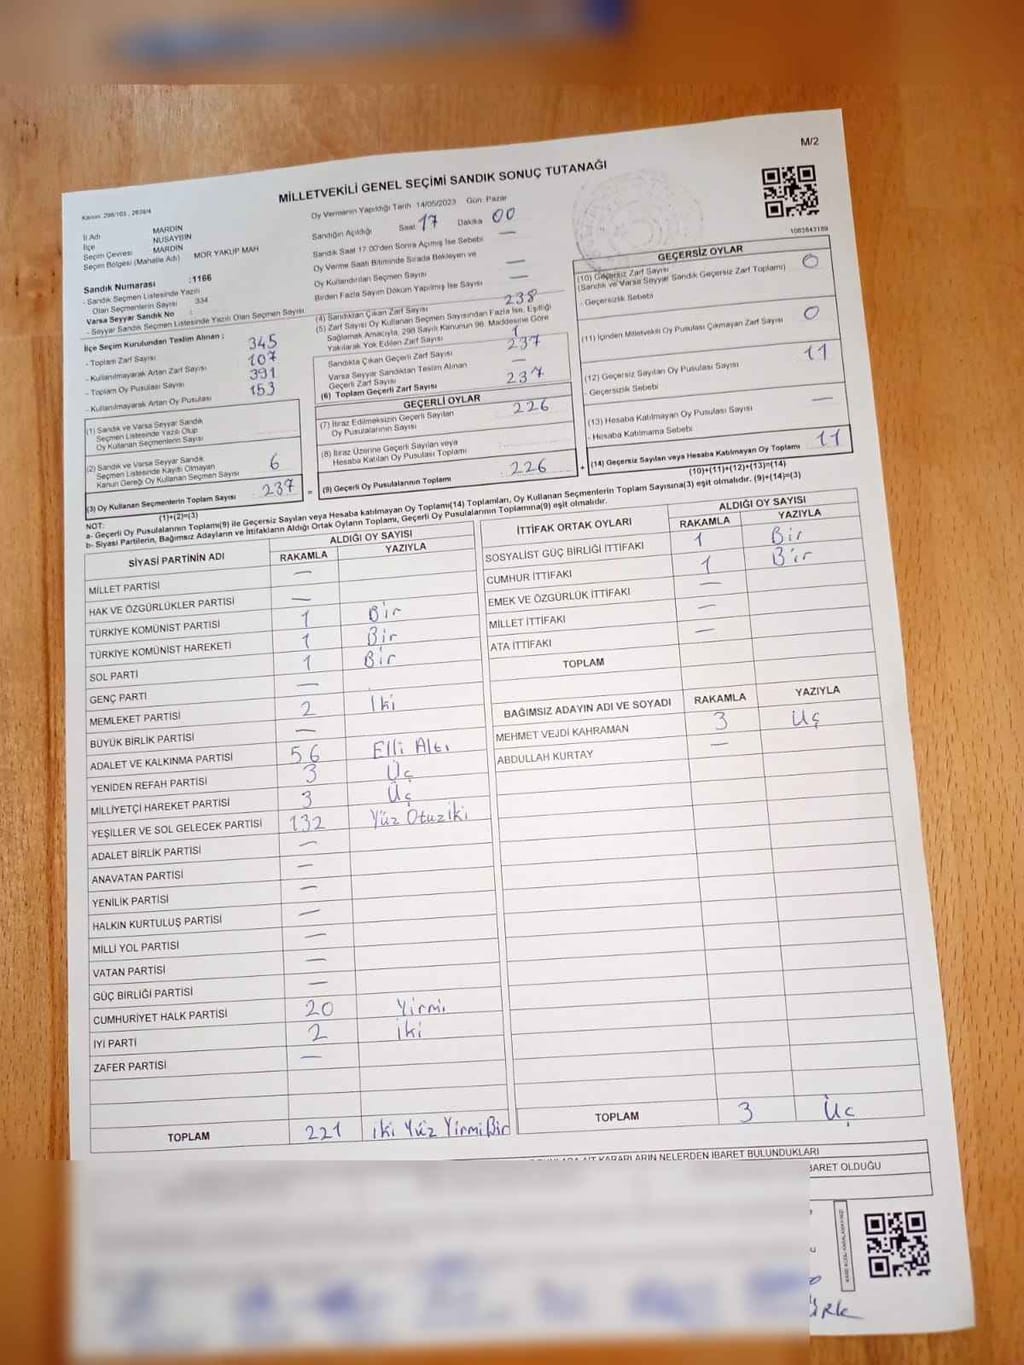 M/2
MİLLETVEKİLİ GENEL SEÇİMİ SANDIK SONUÇ TUTANAĞI
Kanun 298/103 , 2839/4
İl Adı MARDİN
İlçe NUSAYBİN
Seçim Çevresi MARDİN
Seçim Bölgesi (Mahalle Adı) MOR YAKUP MAH
Sandık Numarası :1166
- Sandık Seçmen Listesinde Yazılı
Olan Seçmenlerin Sayısı 334
Varsa Seyyar Sandık No :
- Seyyar Sandık Seçmen Listesinde Yazılı Olan Seçmen Sayısı
İlçe Seçim Kurulundan Teslim Alınan :
- Toplam Zarf Sayısı 345
- Kullanılmayarak Artan Zarf Sayısı 107
- Toplam Oy Pusulası Sayısı 391
- Kullanılmayarak Artan Oy Pusulası 153
(1) Sandık ve Varsa Seyyar Sandık
Seçmen Listesinde Yazılı Olup
Oy Kullanan Seçmenlerin Sayısı
(2) Sandık ve Varsa Seyyar Sandık
Seçmen Listesinde Kaydı Olmayan
Kanun Gereği Oy Kullanan Seçmen Sayısı 6
(3) Oy Kullanan Seçmenlerin Toplam Sayısı 237
(1)+(2)=(3)
Oy Vermenin Yapıldığı Tarih 14/05/2023 Gün Pazar
Sandığın Açıldığı Saat 17 Dakika 00
Sandık Saat 17:00'den Sonra Açılmış İse Sebebi —
Oy Verme Saati Bitiminde Sırada Bekleyen ve
Oy Kullandırılan Seçmen Sayısı —
Birden Fazla Sayım Döküm Yapılmış İse Sayısı —
(4) Sandıktan Çıkan Zarf Sayısı 238
(5) Zarf Sayısı Oy Kullanan Seçmen Sayısından Fazla İse, Eşitliği
Sağlamak Amacıyla, 298 Sayılı Kanunun 98. Maddesine Göre
Yakılarak Yok Edilen Zarf Sayısı 1
Sandıkta Çıkan Geçerli Zarf Sayısı 237
Varsa Seyyar Sandıktan Teslim Alınan
Geçerli Zarf Sayısı —
(6) Toplam Geçerli Zarf Sayısı 237
GEÇERLİ OYLAR
(7) İtiraz Edilmeksizin Geçerli Sayılan
Oy Pusulalarının Sayısı 226
(8) İtiraz Üzerine Geçerli Sayılan veya
Hesaba Katılan Oy Pusulası Toplamı
(9) Geçerli Oy Pusulalarının Toplamı 226
1083843189
GEÇERSİZ OYLAR
(10) Geçersiz Zarf Sayısı
(Sandık ve Varsa Seyyar Sandık Geçersiz Zarf Toplamı) 0
- Geçersizlik Sebebi
(11) İçinden Milletvekili Oy Pusulası Çıkmayan Zarf Sayısı 0
(12) Geçersiz Sayılan Oy Pusulası Sayısı 11
- Geçersizlik Sebebi
(13) Hesaba Katılmayan Oy Pusulası Sayısı —
- Hesaba Katılmama Sebebi
(14) Geçersiz Sayılan veya Hesaba Katılmayan Oy Toplamı 11
(10)+(11)+(12)+(13)=(14)
NOT:
a- Geçerli Oy Pusulalarının Toplamı(9) ile Geçersiz Sayılan veya Hesaba katılmayan Oy Toplamı(14) Toplamları, Oy Kullanan Seçmenlerin Toplam Sayısına(3) eşit olmalıdır. (9)+(14)=(3)
b- Siyasi Partilerin, Bağımsız Adayların ve İttifakların Aldığı Ortak Oyların Toplamı, Geçerli Oy Pusulalarının Toplamına(9) eşit olmalıdır.
SİYASİ PARTİNİN ADI ALDIĞI OY SAYISI
RAKAMLA YAZIYLA
MİLLET PARTİSİ —
HAK VE ÖZGÜRLÜKLER PARTİSİ —
TÜRKİYE KOMÜNİST PARTİSİ 1 Bir
TÜRKİYE KOMÜNİST HAREKETİ 1 Bir
SOL PARTİ 1 Bir
GENÇ PARTİ —
MEMLEKET PARTİSİ 2 İki
BÜYÜK BİRLİK PARTİSİ —
ADALET VE KALKINMA PARTİSİ 56 Elli Altı
YENİDEN REFAH PARTİSİ 3 Üç
MİLLİYETÇİ HAREKET PARTİSİ 3 Üç
YEŞİLLER VE SOL GELECEK PARTİSİ 132 Yüz Otuziki
ADALET BİRLİK PARTİSİ —
ANAVATAN PARTİSİ —
YENİLİK PARTİSİ —
HALKIN KURTULUŞ PARTİSİ —
MİLLİ YOL PARTİSİ —
VATAN PARTİSİ —
GÜÇ BİRLİĞİ PARTİSİ —
CUMHURİYET HALK PARTİSİ 20 Yirmi
İYİ PARTİ 2 İki
ZAFER PARTİSİ —
TOPLAM 221 iki Yüz YirmiBir
İTTİFAK ORTAK OYLARI ALDIĞI OY SAYISI
RAKAMLA YAZIYLA
SOSYALİST GÜÇ BİRLİĞİ İTTİFAKI 1 Bir
CUMHUR İTTİFAKI 1 Bir
EMEK VE ÖZGÜRLÜK İTTİFAKI —
MİLLET İTTİFAKI —
ATA İTTİFAKI —
TOPLAM
BAĞIMSIZ ADAYIN ADI VE SOYADI RAKAMLA YAZIYLA
MEHMET VEJDİ KAHRAMAN 3 Üç
ABDULLAH KURTAY —
TOPLAM 3 Üç
KARARLARIN NELERDEN İBARET BULUNDUKLARI
İBARET OLDUĞU